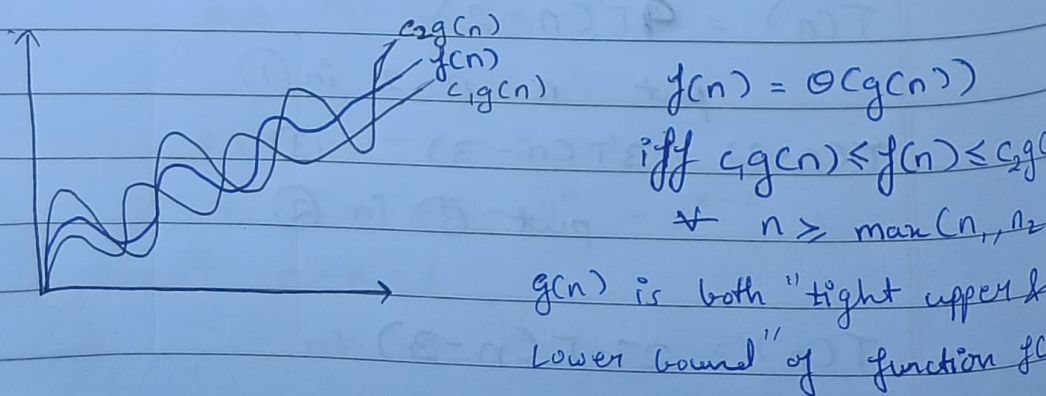 c₂g(n)
f(n)
c₁g(n)
f(n) = Θ(g(n))
iff c₁g(n) ≤ f(n) ≤ c₂g(
∀ n ≥ max(n₁, n₂
g(n) is both "tight upper &
Lower bound" of function f(